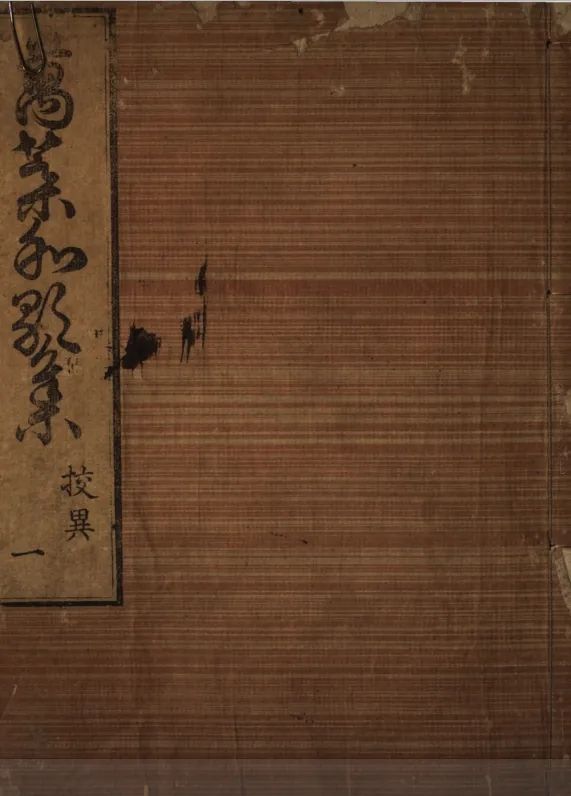 萬葉和歌集
挍異
一